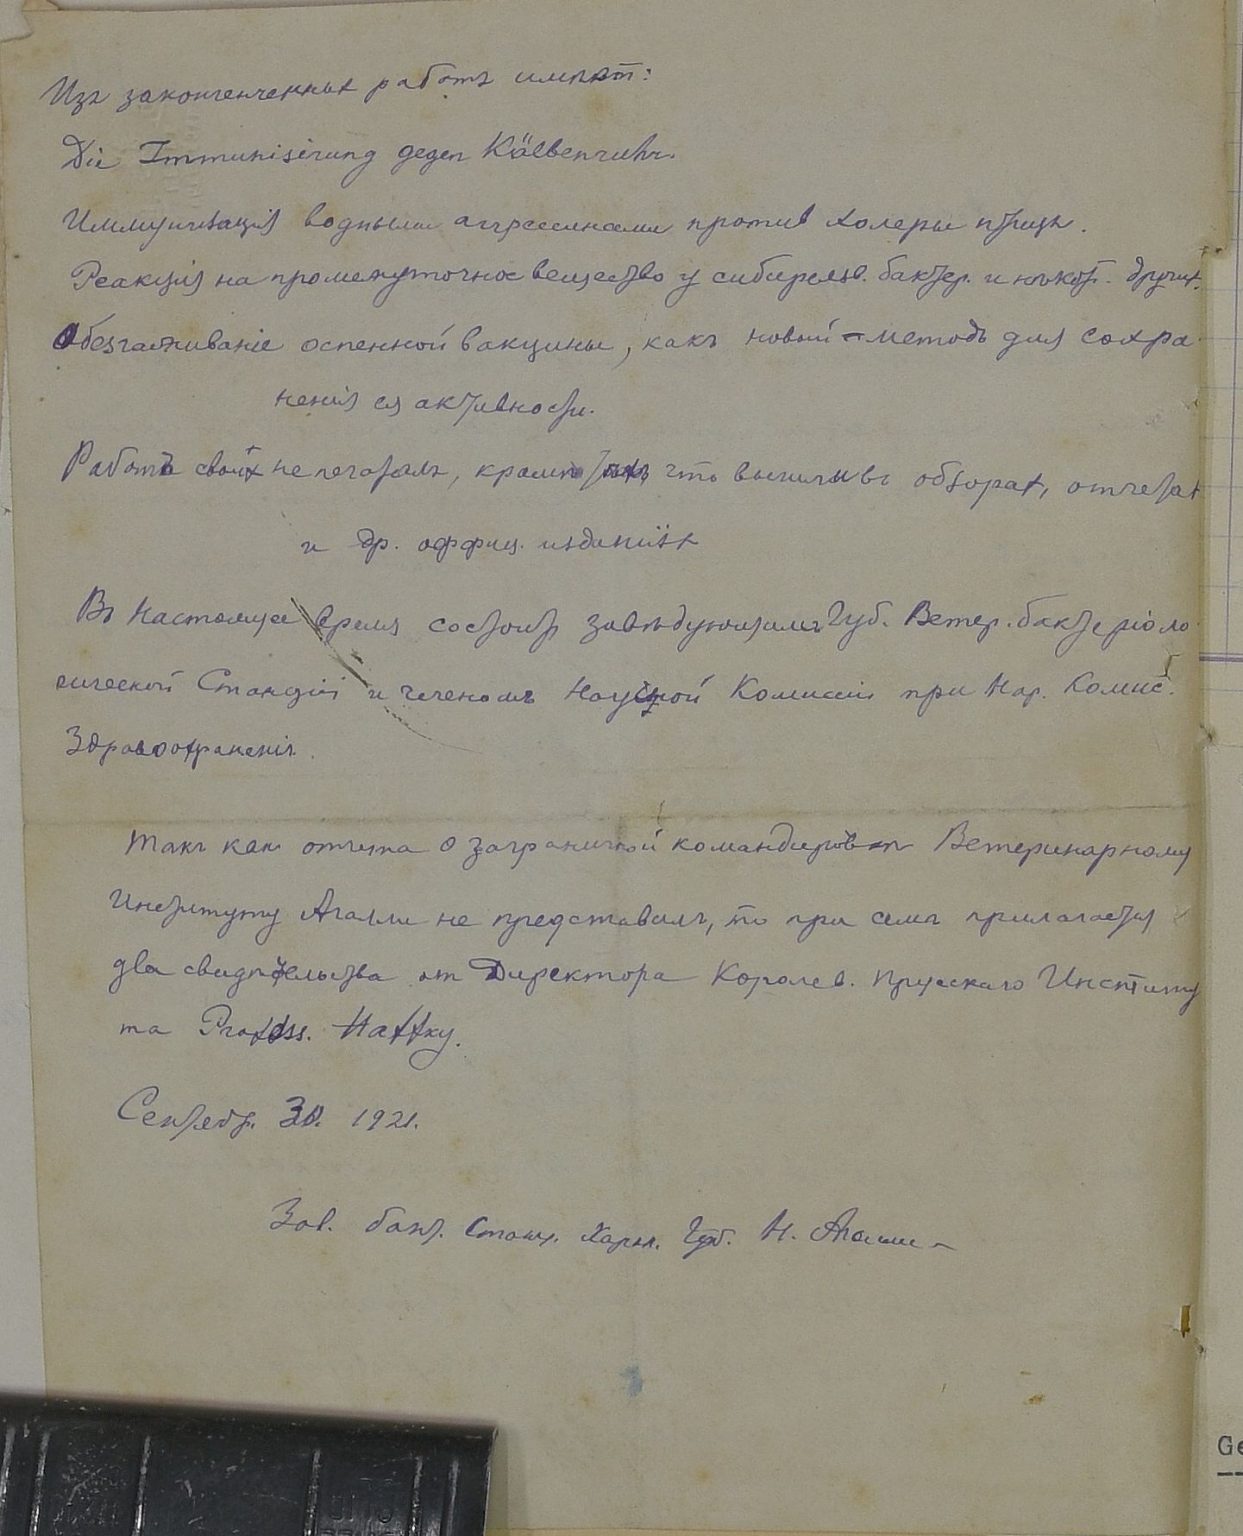 Изъ законченныхъ работъ имѣетъ:
Die Immunisirung gegen Kälberruhr.
Иммунизація водными аггрессинами против холеры птицъ.
Реакція на промежуточное вещество у сибиреязв. бактер. и нѣкот. других.
Обезгаживаніе оспенной вакцины, какъ новый методъ для сохра
ненія ея активности.
Работъ своихъ не печаталъ, кромѣ тѣхъ, что вышли въ обзорах, отчетах
и др. оффиц. изданіях
Въ настоящее время состоит завѣдующимъ Губ. Ветер. бактеріоло
гической Станціи и членомъ Научной Комиссіи при Нар. Комис.
Здравоохраненія.
Такъ как отчета о заграничной командировкѣ Ветеринарному
Институту Агалли не представилъ, то при семъ прилагается
два свидѣтельства от Директора Королев. Прусскаго Институ
та Profess. Gaffky.
Сентябр. 30. 1921.
Зав. бакт. Станц. Харьк. Губ. Н. Агалли
Ge